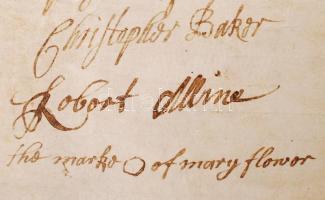 Christopher Baker
Robert Alline
the marke O of mary flower